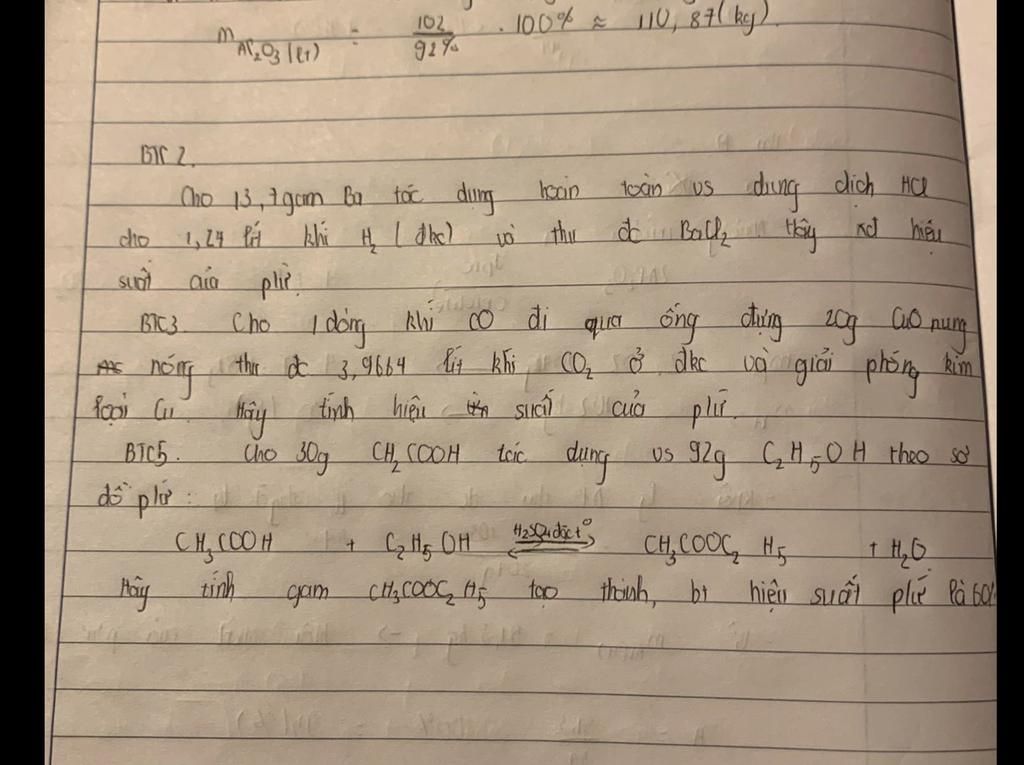 m Al2O3 (lt) = 102 / 92% . 100% ≈ 110,87 (kg).
BTC 2.
Cho 13,7 gam Ba tác dụng hoàn toàn vs dung dịch HCl
cho 1,24 lít khí H2 (đkc) và thu đc BaCl2. Hãy xđ hiệu
suất của pứ.
BTC3. Cho 1 dòng khí CO đi qua ống đựng 20g CuO nung
nóng thu đc 3,9664 lít khí CO2 ở đkc và giải phóng kim
loại Cu. Hãy tính hiệu suất của pứ.
BTC5. Cho 30g CH3COOH tác dụng vs 92g C2H5OH theo sơ
đồ pứ:
CH3COOH + C2H5OH ⇌ H2SO4 đặc, t° CH3COOC2H5 + H2O
Hãy tính gam CH3COOC2H5 tạo thành, bt hiệu suất pứ là 60%